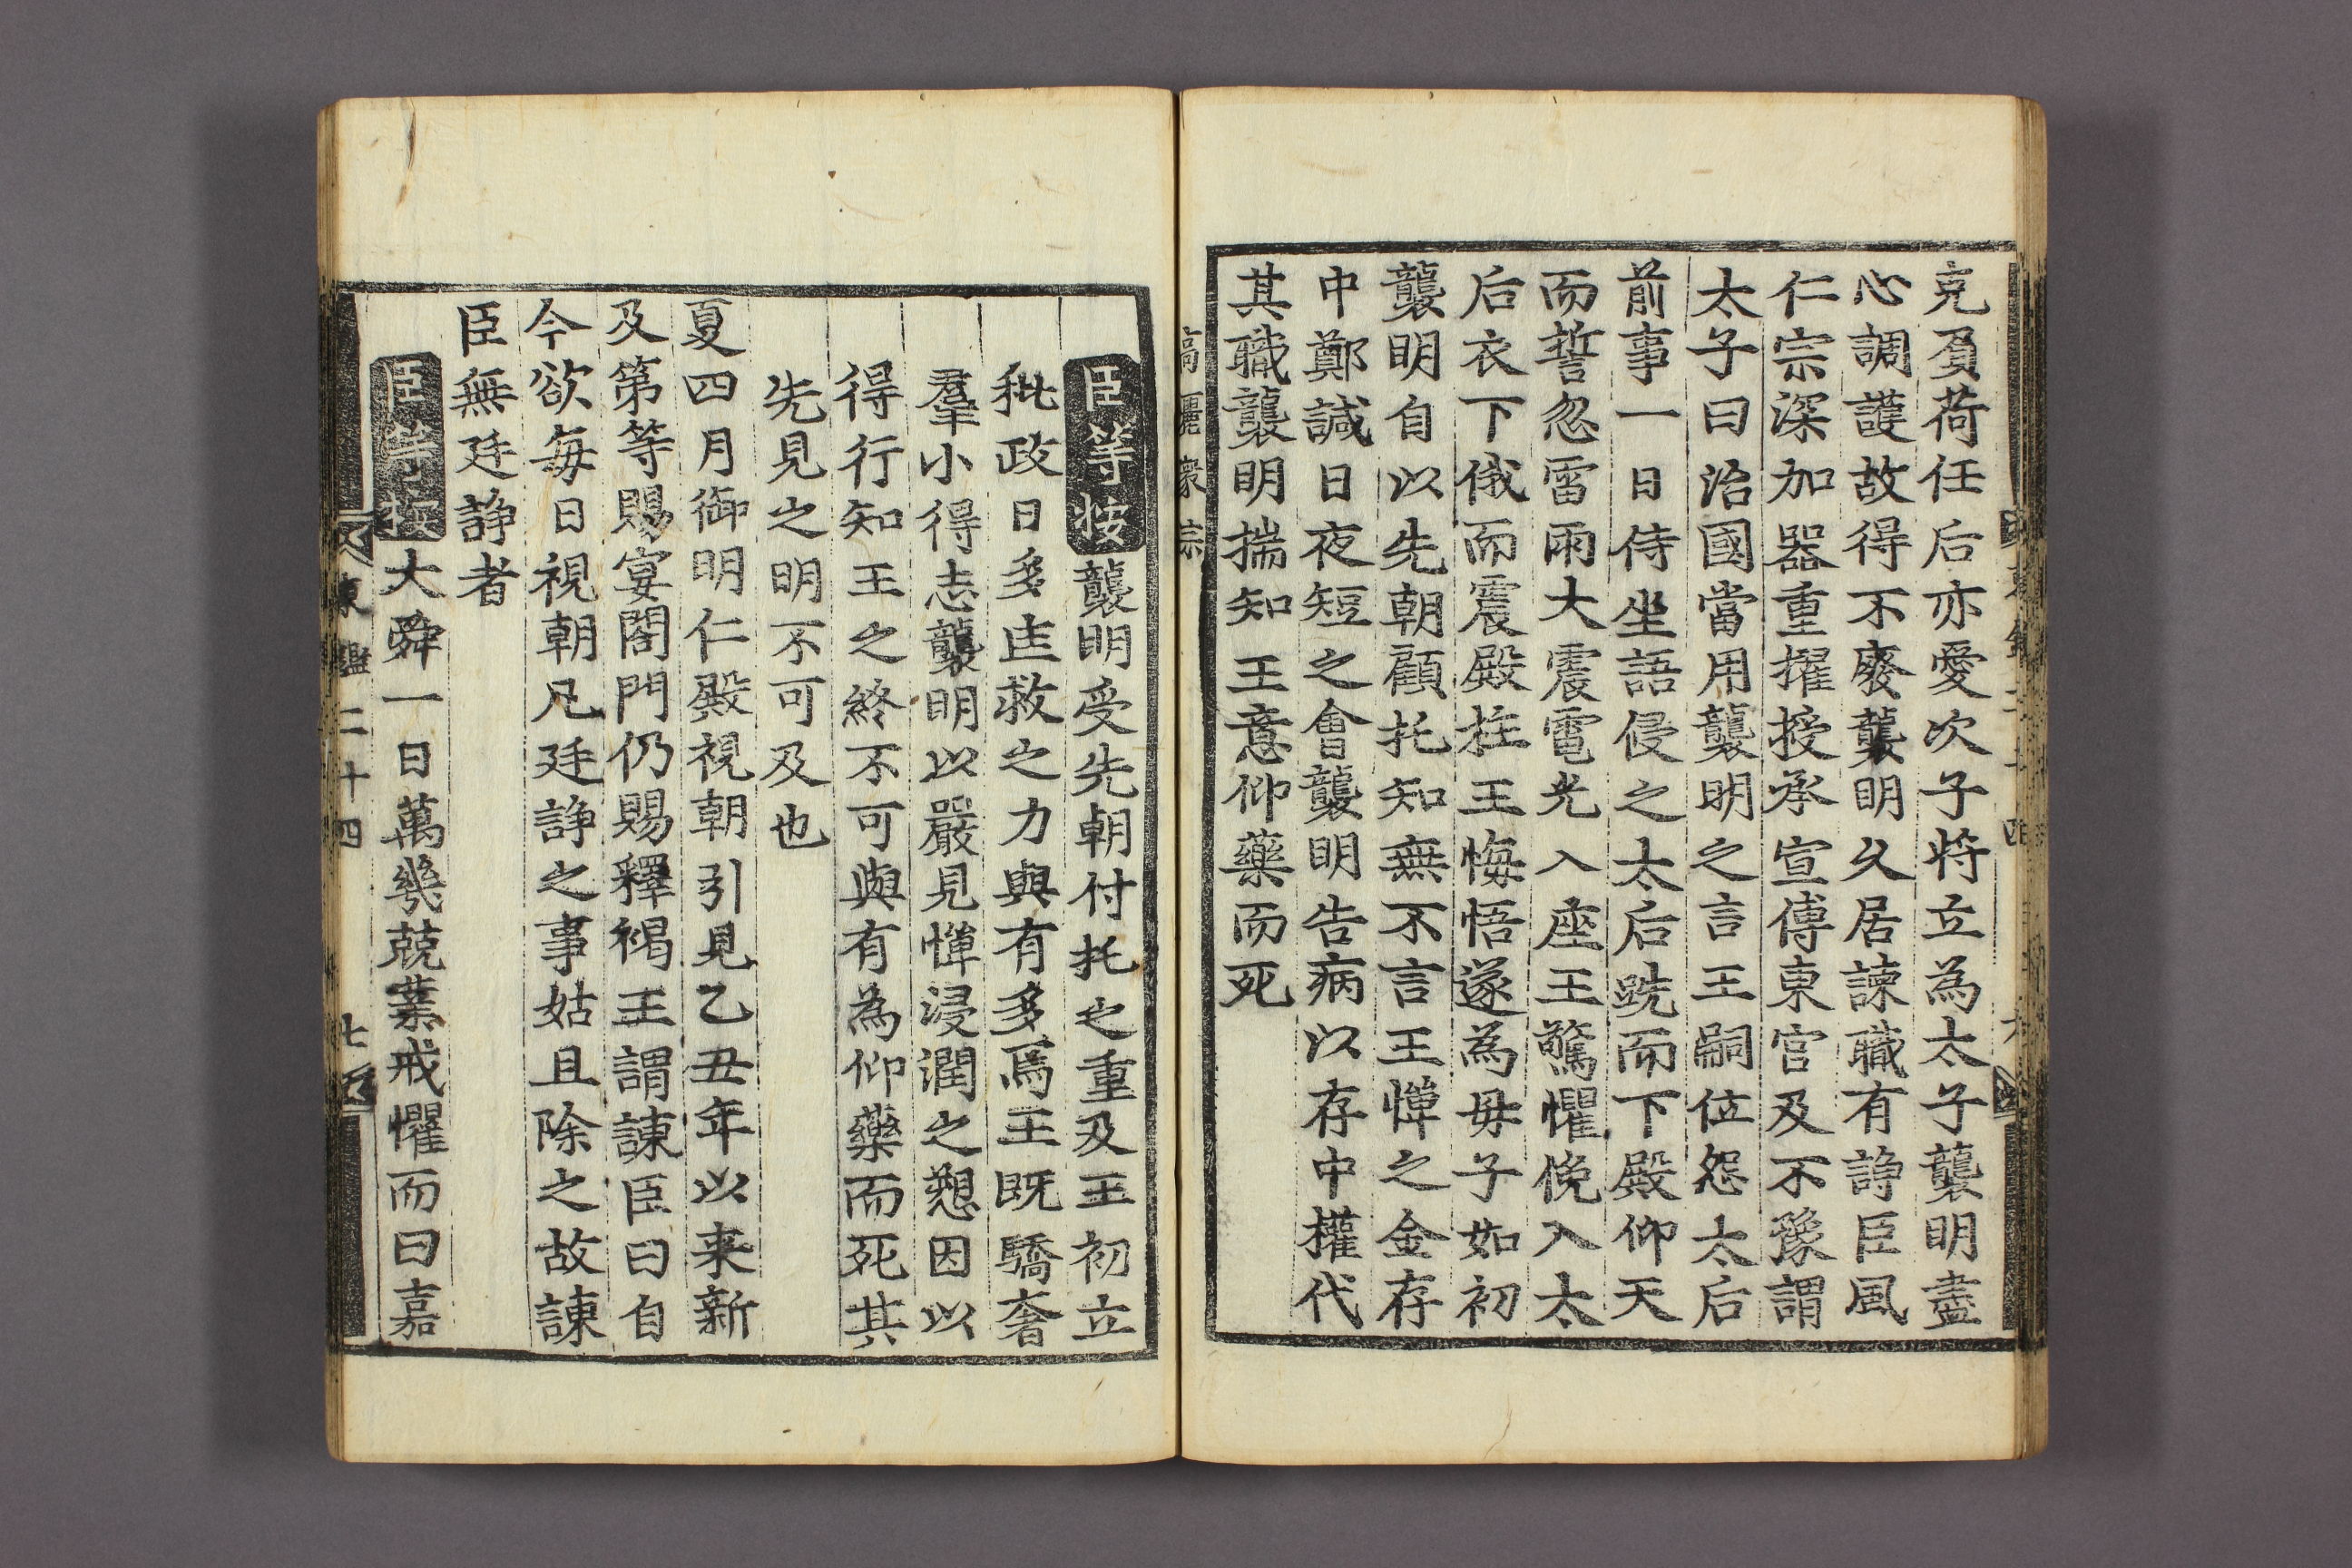 克負荷任后亦愛次子将立為太子襲明盡
心調護故得不廢襲明久居諫職有諍臣風
仁宗深加器重擢授承宣傅東宮及不豫謂
太子曰治國當用襲明之言王嗣位怨太后
前事一日侍坐語侵之太后跣而下殿仰天
而誓忽雷雨大震電光入座王驚懼俛入太
后衣下俄而震殿柱王悔悟遂為毋子如初
襲明自以先朝顧托知無不言王憚之金存
中鄭諴日夜短之會襲明告病以存中權代
其職襲明揣知王意仰藥而死
高麗毅宗
臣等按襲明受先朝付托之重及王初立
秕政日多匡救之力與有多焉王既驕奢
羣小得志襲明以嚴見憚浸潤之愬因以
得行知王之終不可與有為仰藥而死其
先見之明不可及也
夏四月御明仁殿視朝引見乙丑年以来新
及第等賜宴閤門仍賜釋褐王謂諫臣曰自
今欲每日視朝凡廷諍之事姑且除之故諫
臣無廷諍者
臣等按大舜一日萬幾兢業戒懼而曰嘉
東鑑二十四 七